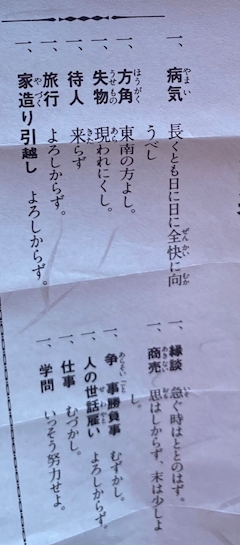 一、病気 長くとも日に日に全快に向
うべし
一、方角 東南の方よし。
一、失物 現われにくし。
一、待人 来らず
一、旅行 よろしからず。
一、家造り引越し よろしからず。
一、縁談 急ぐ時はととのはず。
一、商売 思はしからず、末は少しよ
し。
一、争事勝負事 むずかし。
一、人の世話雇い よろしからず。
一、仕事 むづかし。
一、学問 いっそう努力せよ。